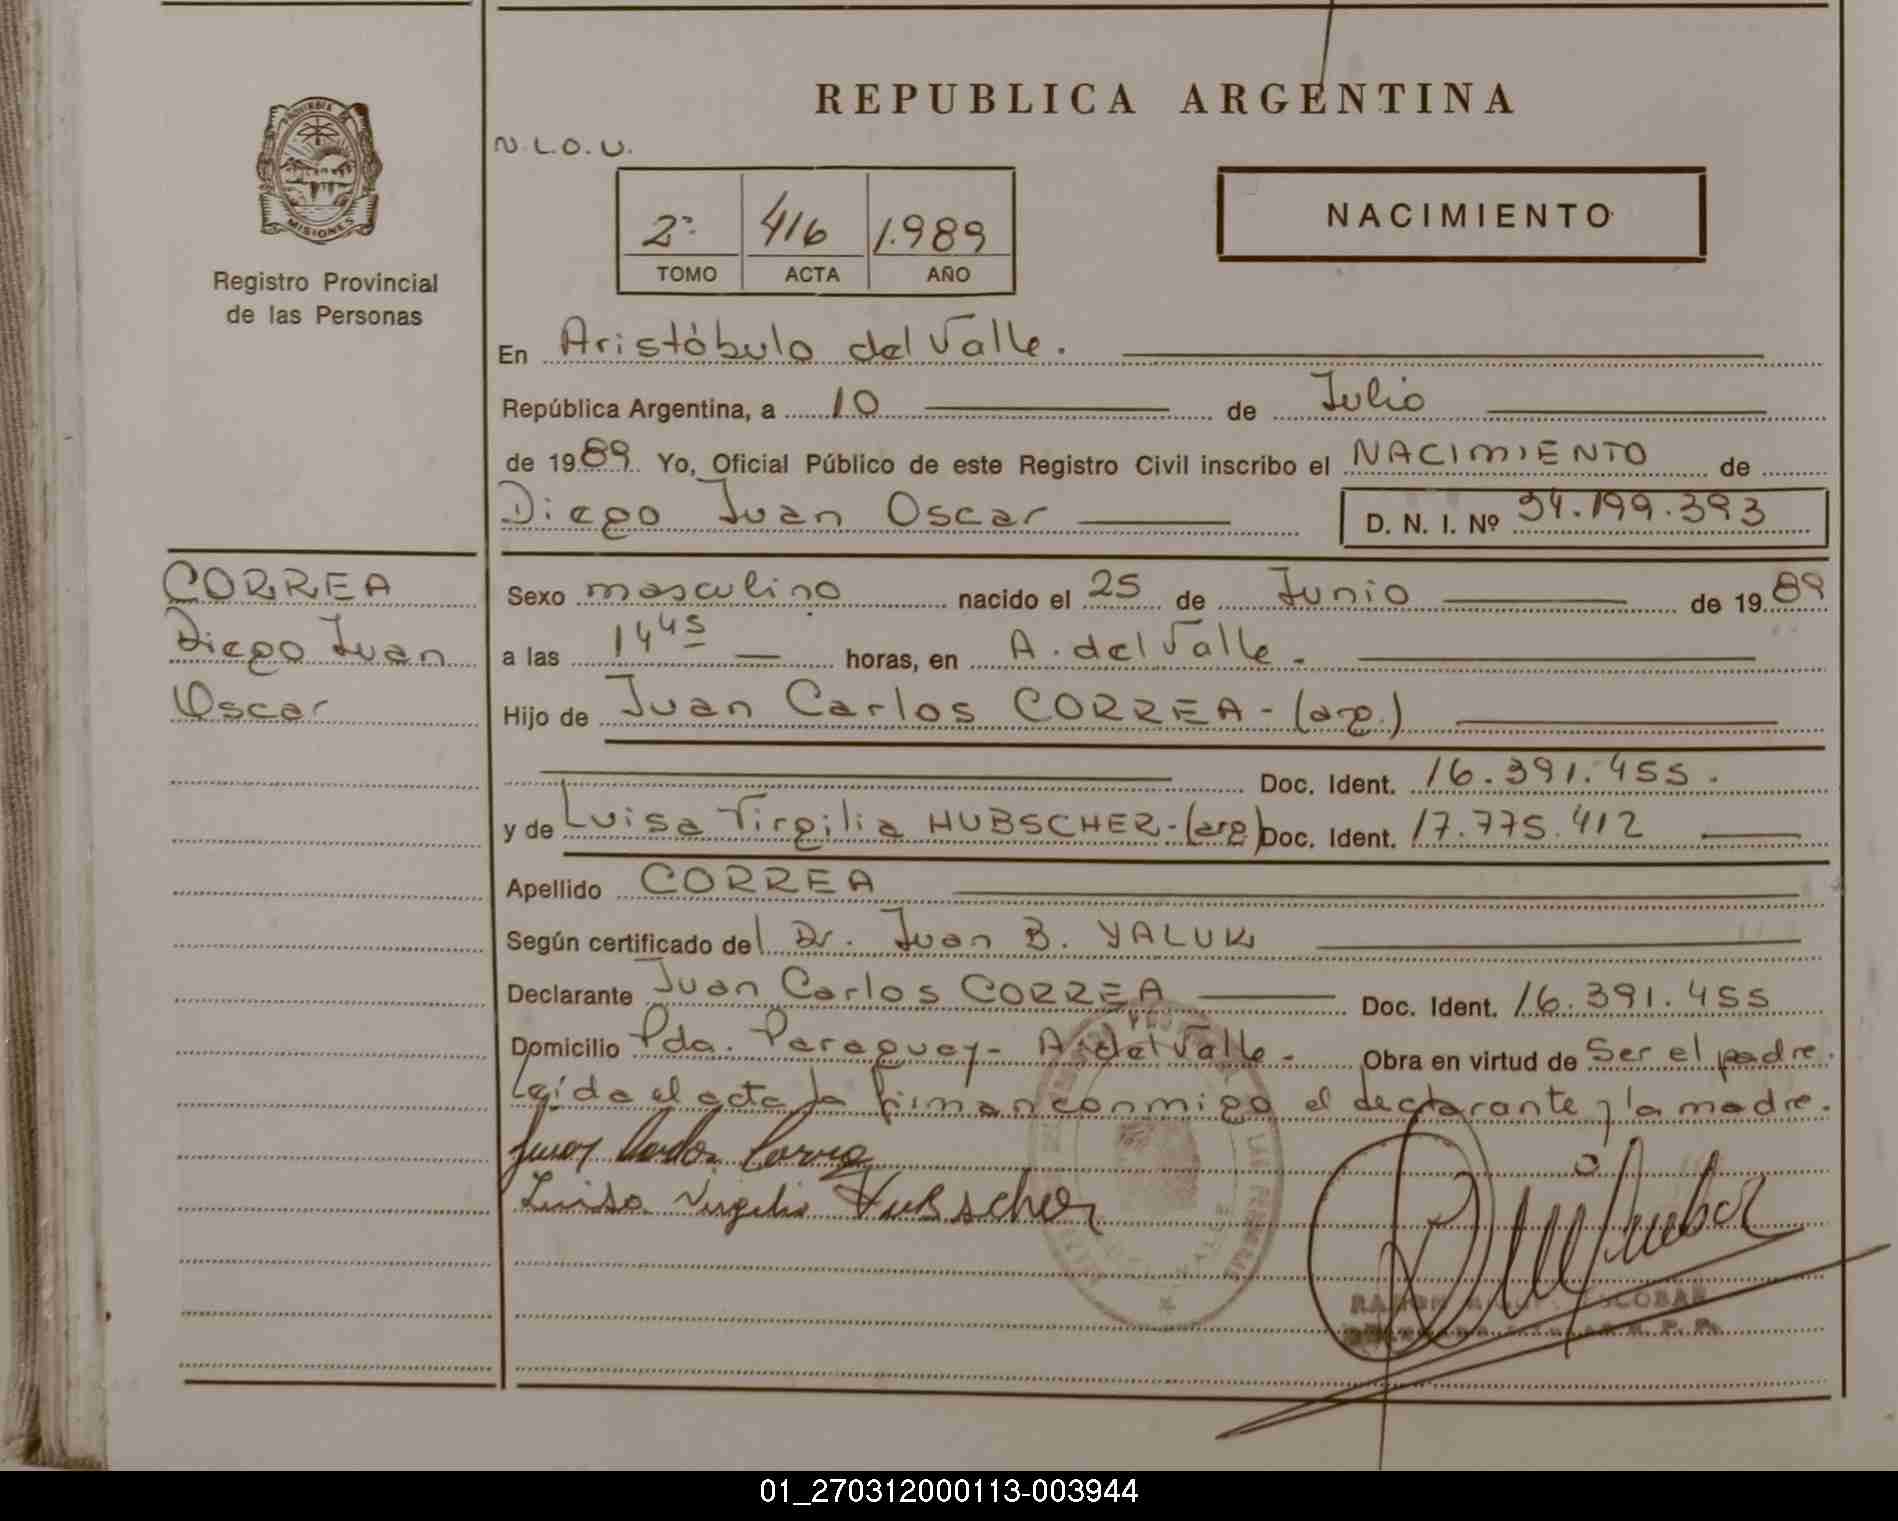 REPUBLICA ARGENTINA
PROVINCIA DE
MISIONES
Registro Provincial
de las Personas
N.L.O.U.
NACIMIENTO
2º 416 1.989
TOMO ACTA AÑO
En Aristóbulo del Valle.
República Argentina, a 10 de Julio
de 1989. Yo, Oficial Público de este Registro Civil inscribo el NACIMIENTO de
Diego Juan Oscar D. N. I. Nº 34.199.393
CORREA
Diego Juan
Oscar
Sexo masculino nacido el 25 de Junio de 1989
a las 14 45 horas, en A. del Valle.
Hijo de Juan Carlos CORREA - (arg.)
Doc. Ident. 16.391.455.
y de Luisa Virgilia HUBSCHER - (arg) Doc. Ident. 17.775.412
Apellido CORREA
Según certificado del Dr. Juan B. YALUK
Declarante Juan Carlos CORREA Doc. Ident. 16.391.455
Domicilio Pda. Paraguay - A. del Valle - Obra en virtud de Ser el padre.
Leída el acta la firman conmigo el declarante y la madre.
Juan Carlos Correa
Luisa Virgilia Hubscher
LAS PERSONAS
RAMON ESCOBAR
01_270312000113-003944